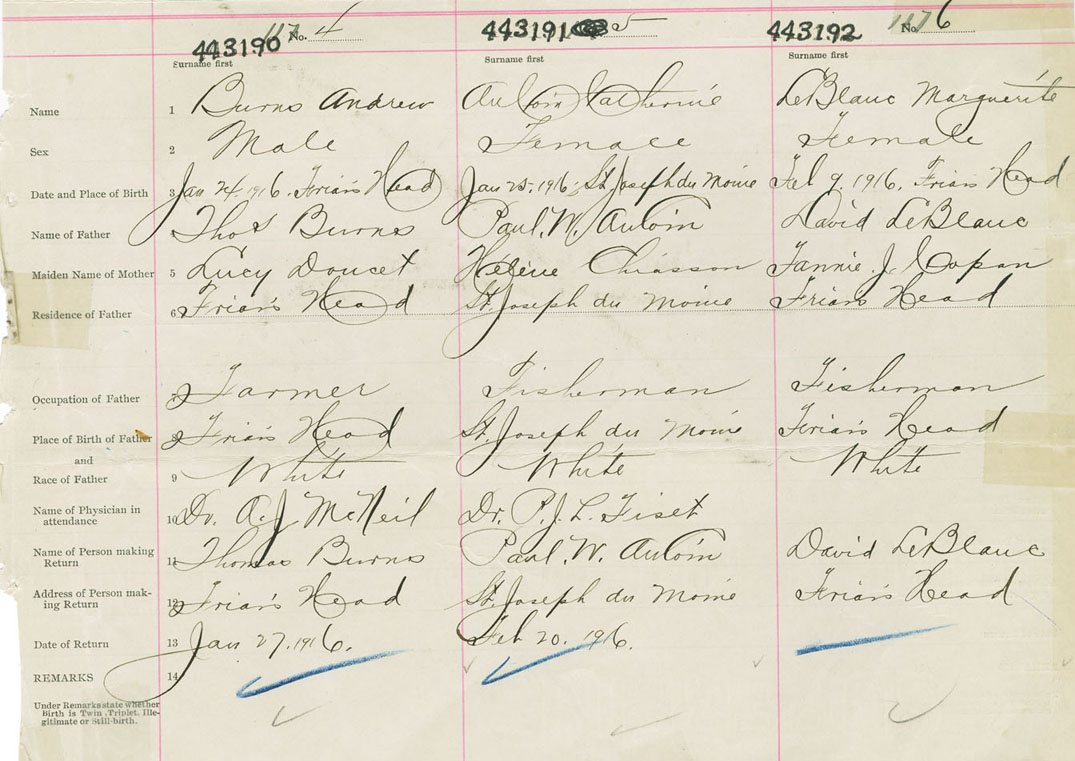 443190 No. 4 443191 5 443192 No. 6
Surname first Surname first Surname first
Name 1 Burns Andrew AuCoin Catherine LeBlanc Marguerite
Sex 2 Male Female Female
Date and Place of Birth 3 Jan 24, 1916. Friar's Head Jan 25, 1916, St. Joseph du Moine Feb 9, 1916, Friar's Head
Name of Father Thos Burns Paul. W. AuCoin David LeBlanc
Maiden Name of Mother 5 Lucy Doucet Helène Chiasson Fannie. J.
Residence of Father 6 Friar's Head St. Joseph du Moine Friar's Head
Occupation of Father 7 Farmer Fisherman Fisherman
Place of Birth of Father 8 Friar's Head St. Joseph du Moine Friar's Head
and
Race of Father 9 White White White
Name of Physician in
attendance 10 Dr. A. J McNeil Dr. P. J. L. Fiset
Name of Person making
Return 11 Thomas Burns Paul. W. AuCoin David LeBlanc
Address of Person mak-
ing Return 12 Friar's Head St. Joseph du Moine Friar's Head
Date of Return 13 Jan 27, 1916. Feb 20, 1916.
REMARKS 14
Under Remarks state whether
Birth is Twin, Triplet, Ille-
gitimate or Still-birth.